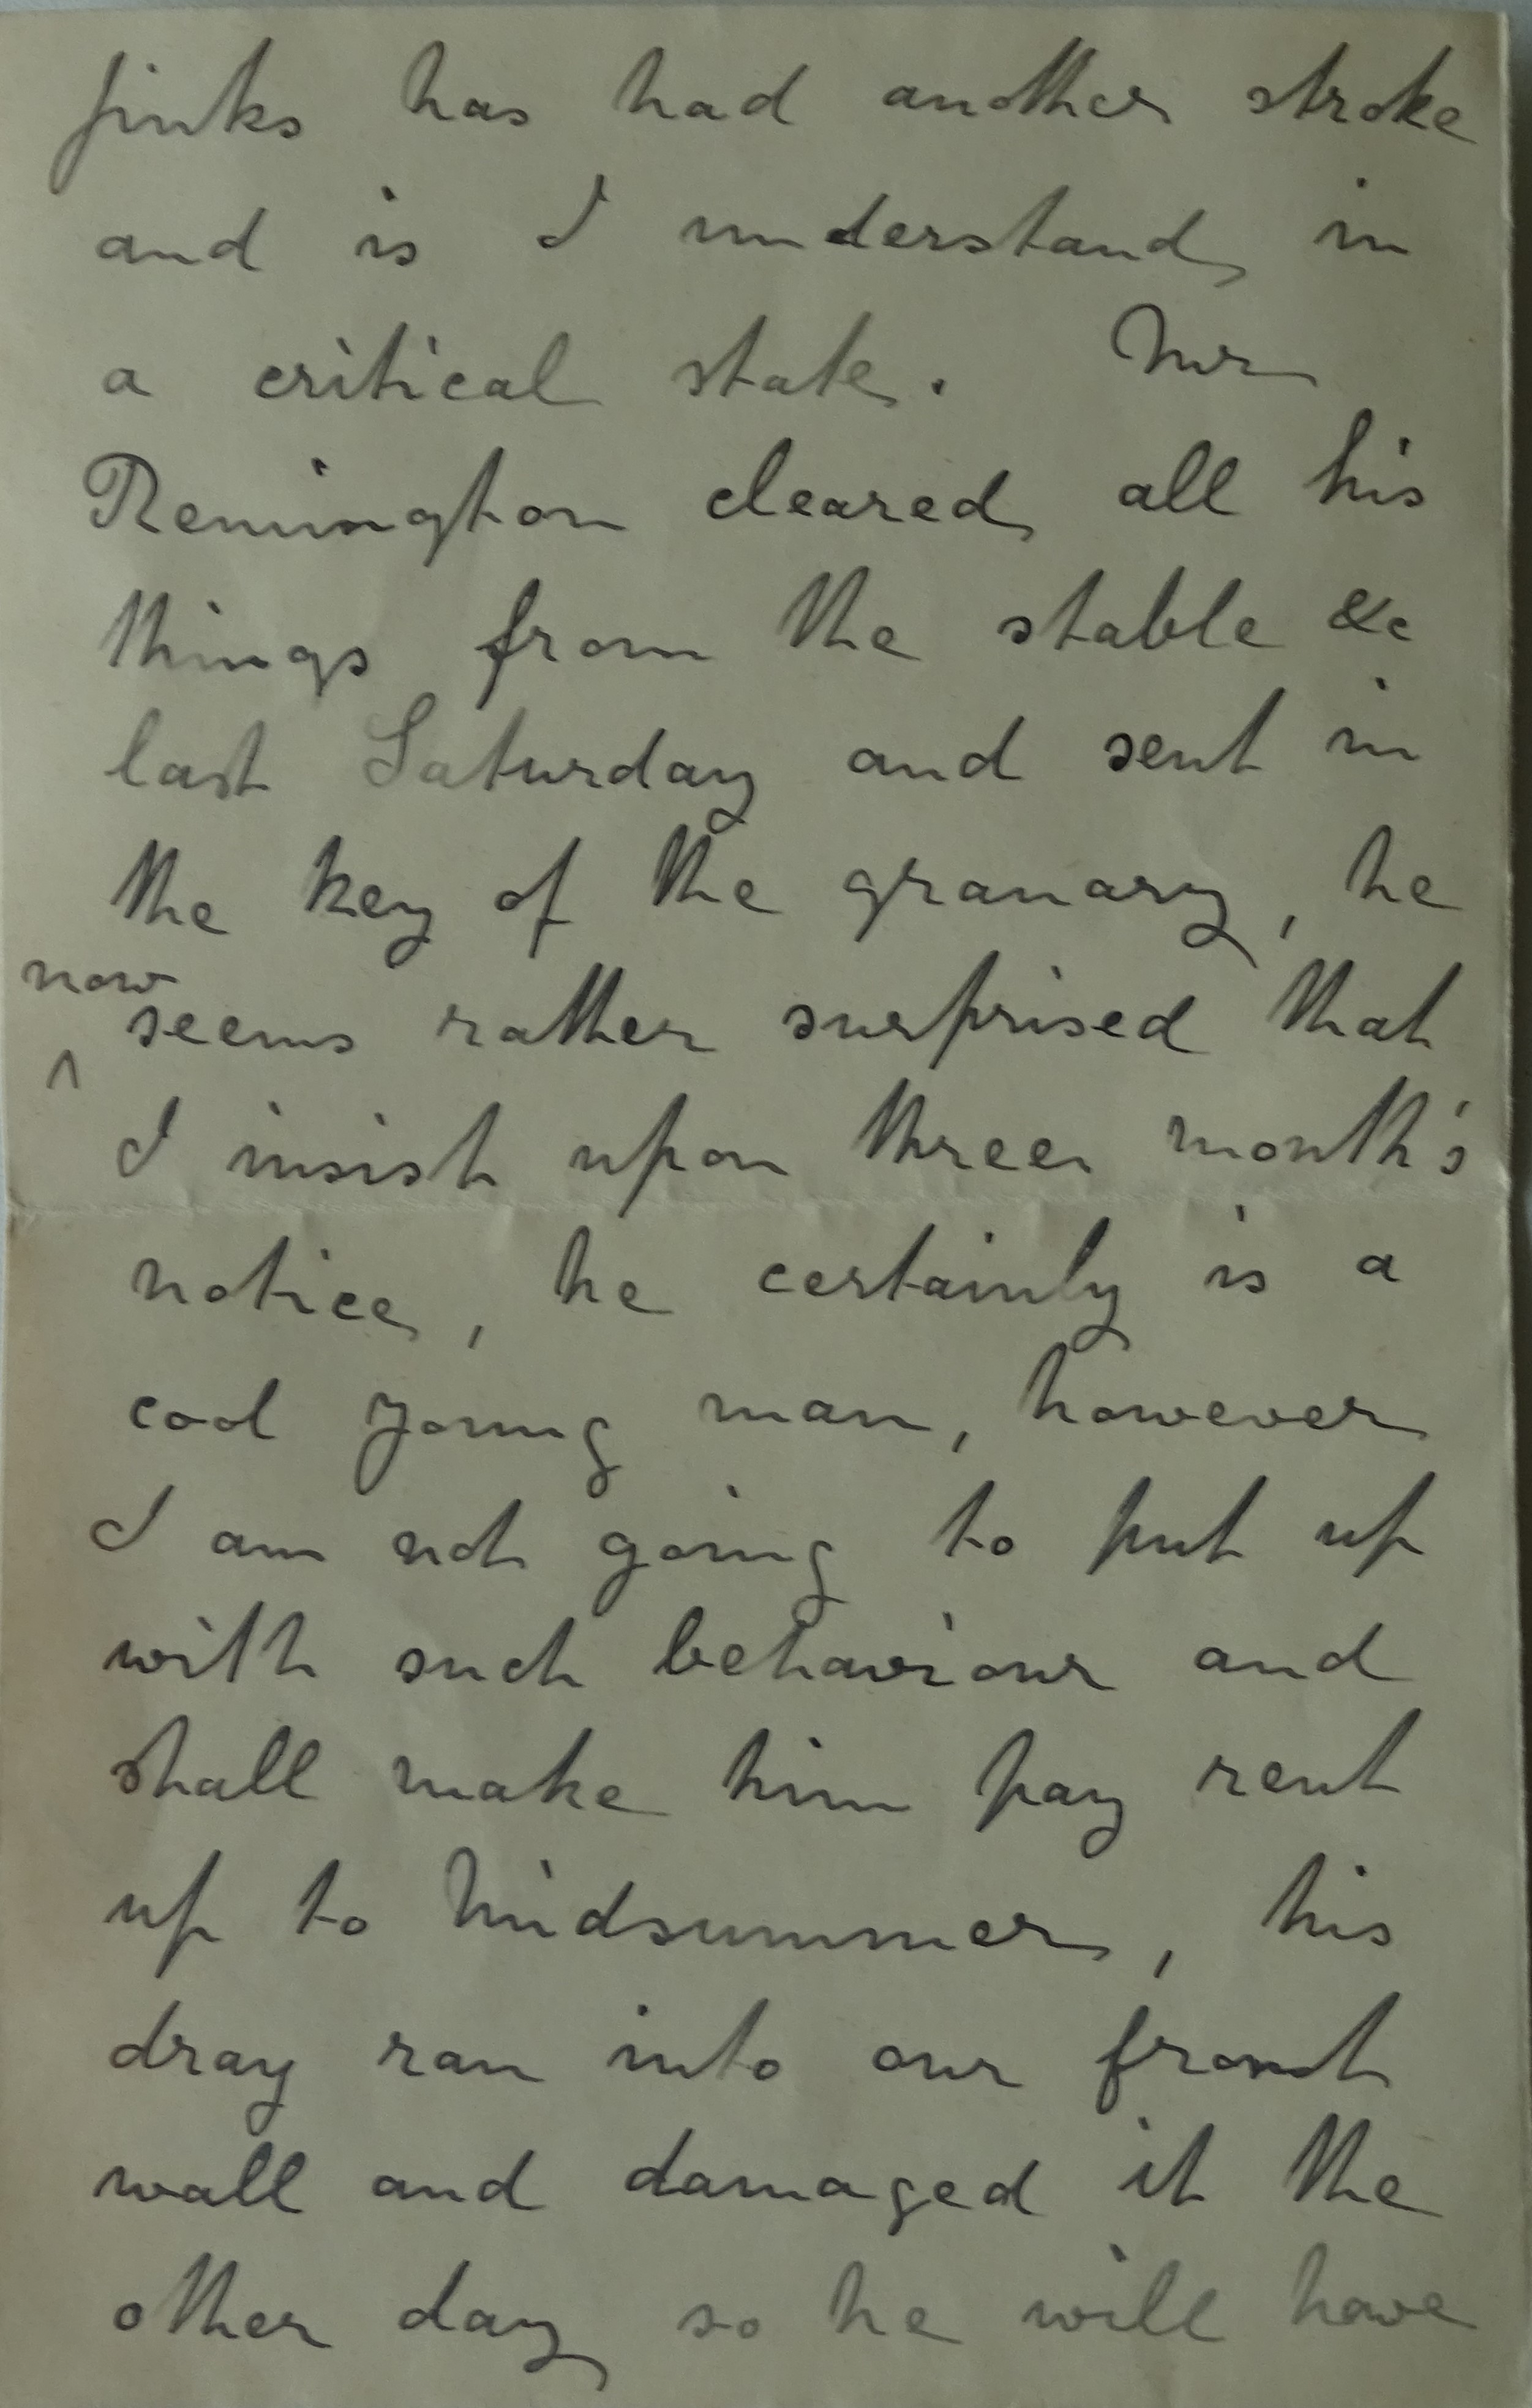 Jinks has had another stroke
and is I understand in
a critical state. Mr
Remington cleared all his
things from the stable &c
last Saturday and sent in
the key of the granary, he
now
seems rather surprised that
^
I insist upon three month's
notice, he certainly is a
cool young man, however
I am not going to put up
with such behaviour and
shall make him pay rent
up to Midsummer, his
dray ran into our front
wall and damaged it the
other day so he will have